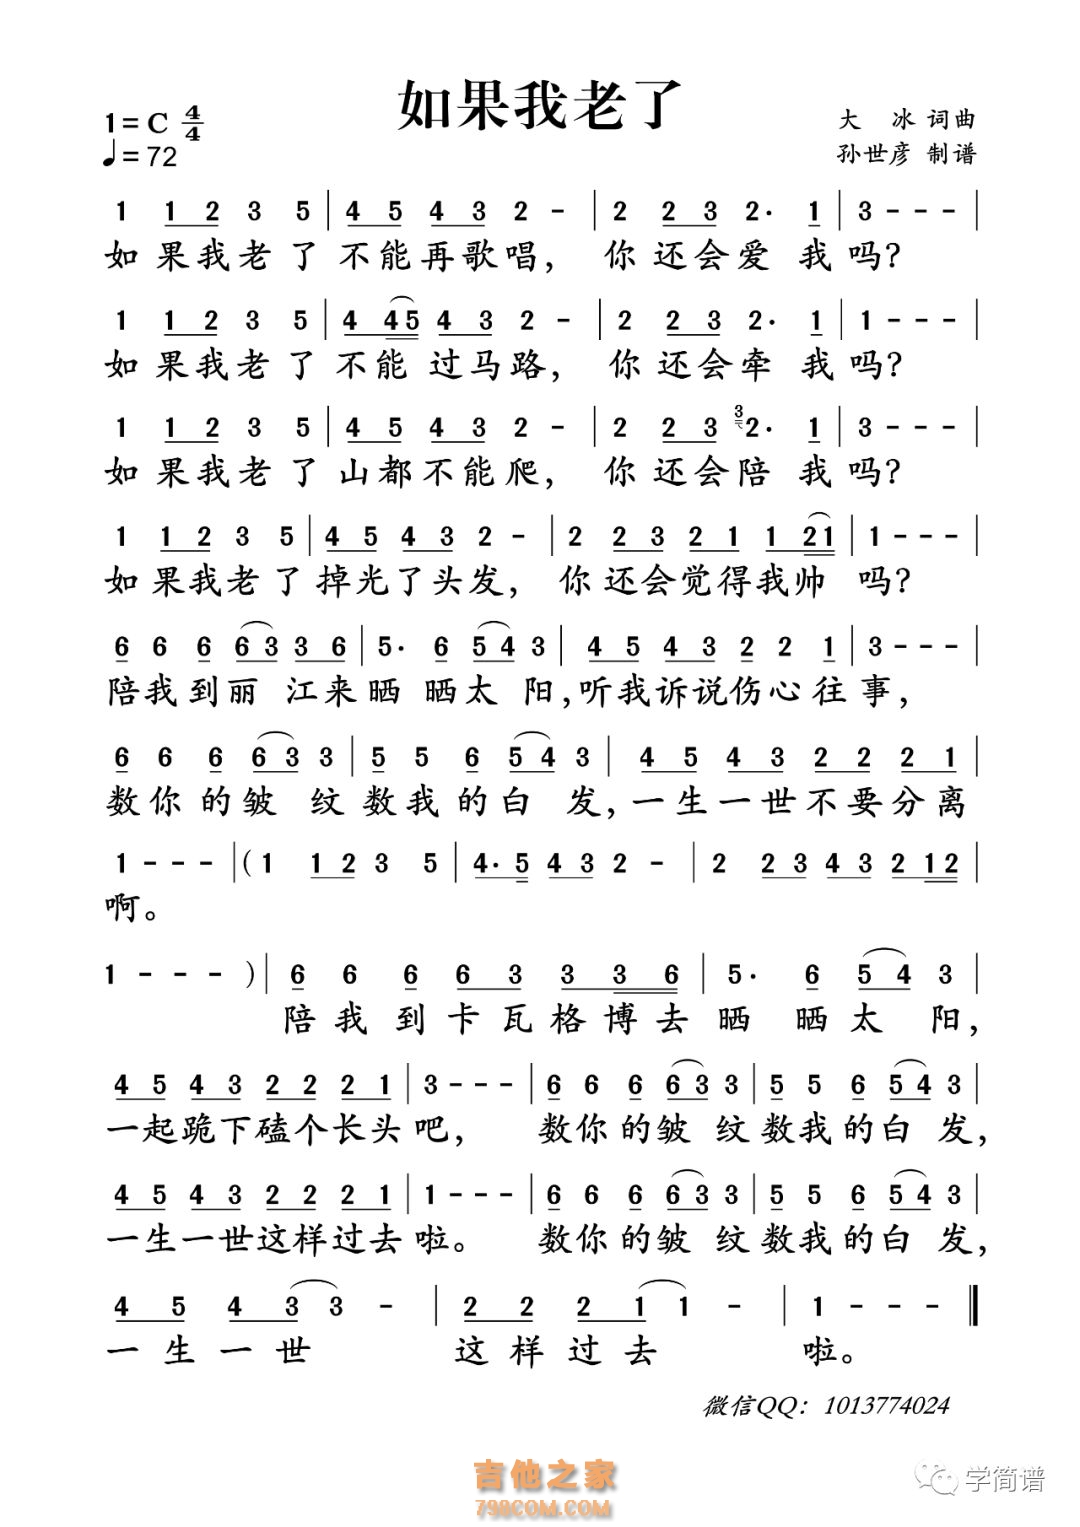 如果我老了
1=C 4/4
♩=72
大 冰 词曲
孙世彦 制谱
1 1 2 3 5 | 4 5 4 3 2 - | 2 2 3 2· 1 | 3 - - - |
如果我老了不能再歌唱，你还会爱我吗？
1 1 2 3 5 | 4 4 5 4 3 2 - | 2 2 3 2· 1 | 1 - - - |
如果我老了不能过马路，你还会牵我吗？
1 1 2 3 5 | 4 5 4 3 2 - | 2 2 3 3 2· 1 | 3 - - - |
如果我老了山都不能爬，你还会陪我吗？
1 1 2 3 5 | 4 5 4 3 2 - | 2 2 3 2 1 1 2 1 | 1 - - - |
如果我老了掉光了头发，你还会觉得我帅 吗？
6 6 6 6 3 3 6 | 5· 6 5 4 3 | 4 5 4 3 2 2 1 | 3 - - - |
陪我到丽 江来晒 晒太 阳，听我诉说伤心往事，
6 6 6 6 3 3 | 5 5 6 5 4 3 | 4 5 4 3 2 2 2 1 |
数你的皱 纹数我的白 发，一生一世不要分离
1 - - - | (1 1 2 3 5 | 4· 5 4 3 2 - | 2 2 3 4 3 2 1 2 |
啊。
1 - - - ) | 6 6 6 6 3 3 3 6 | 5· 6 5 4 3 |
陪我到卡瓦格博去晒 晒太 阳，
4 5 4 3 2 2 2 1 | 3 - - - | 6 6 6 6 3 3 | 5 5 6 5 4 3 |
一起跪下磕个长头吧， 数你的皱 纹数我的白 发，
4 5 4 3 2 2 2 1 | 1 - - - | 6 6 6 6 3 3 | 5 5 6 5 4 3 |
一生一世这样过去啦。 数你的皱 纹数我的白 发，
4 5 4 3 3 - | 2 2 2 1 1 - | 1 - - - ‖
一生一世 这样过去 啦。
微信QQ：1013774024
吉他之家
798COM.COM
学简谱